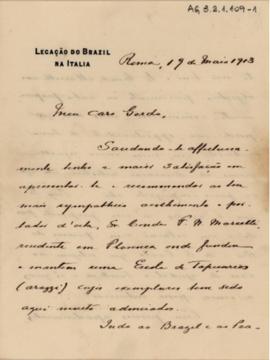 AG 3.2.1.109-1
LEGAÇÃO DO BRAZIL
NA ITALIA
Roma, 19 de Maio 1913
Meu caro Gordo,
Saudando-te affectuosa-
mente tenho a maior satisfação em
apresentar-te e recommendar ao teu
mais sympathico acolhimento o por-
tador d'esta, Sr Conde F. N. Marcello
residente em Florença onde fundou
e mantem uma Escola de Tapeçarias
(arazzi) cujos exemplares tem sido
aqui muito admirados.
Indo ao Brazil e ao